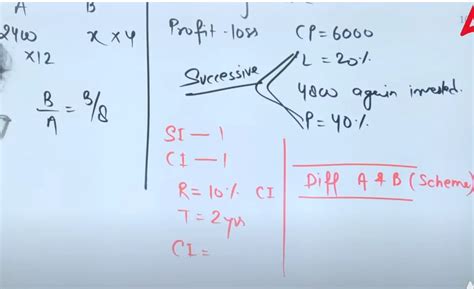 A B
2400 x x 4
x12
B/A = 3/8
Profit-loss
Successive
CP = 6000
L = 20%
4800 again invested.
P = 40%
SI — 1
CI — 1
R = 10% CI
T = 2 yrs
CI =
Diff A & B (Scheme)